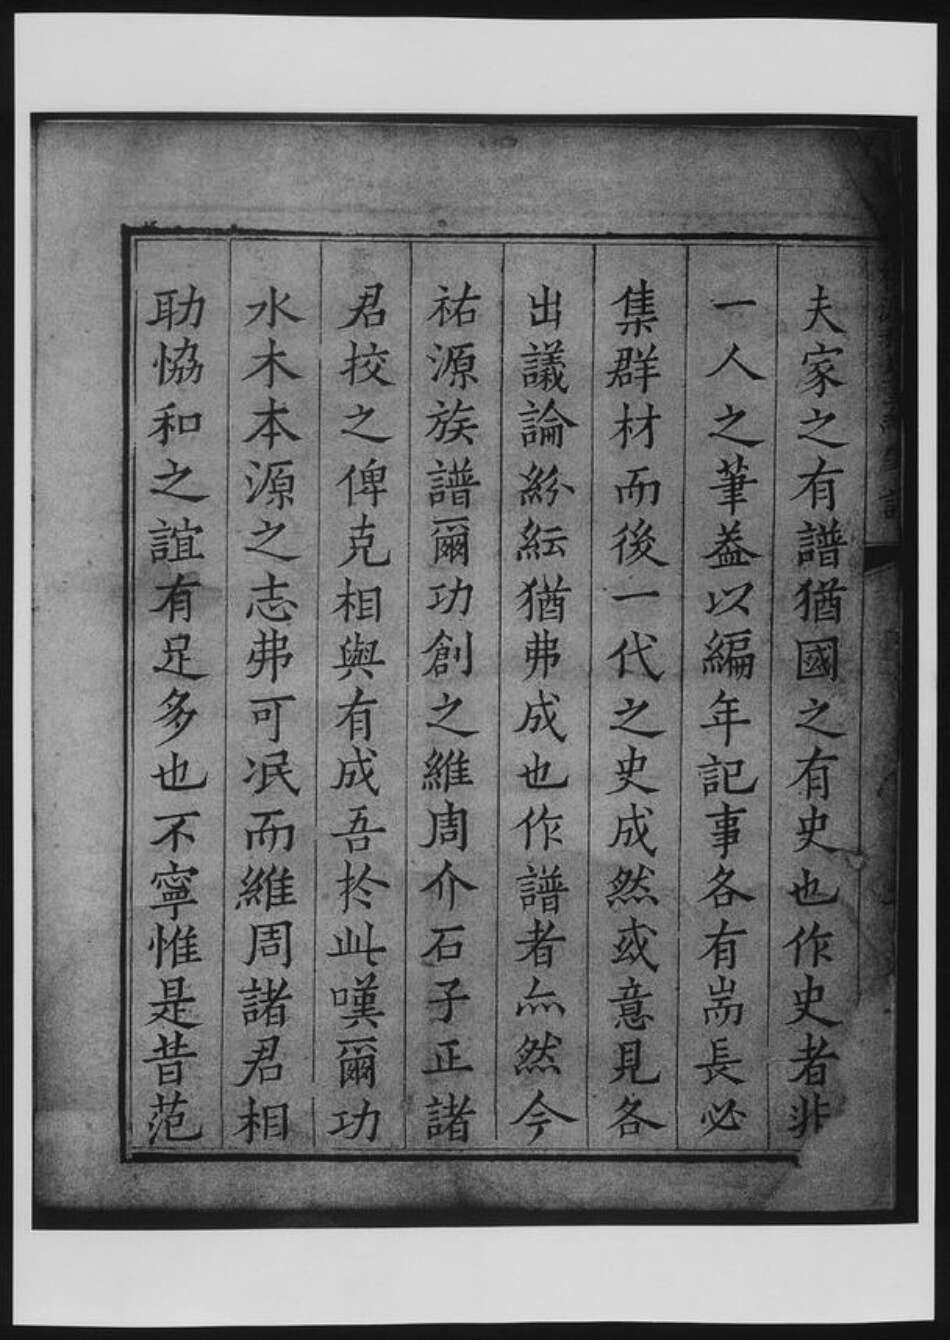 夫家之有譜猶國之有史也作史者非
一人之筆葢以編年記事各有耑長必
集群材而後一代之史成然或意見各
出議論紛紜猶弗成也作譜者亦然今
祐源族譜爾功創之維周介石子正諸
君挍之俾克相與有成吾於此嘆爾功
水木本源之志弗可冺而維周諸君相
助恊和之誼有足多也不寧惟是昔范